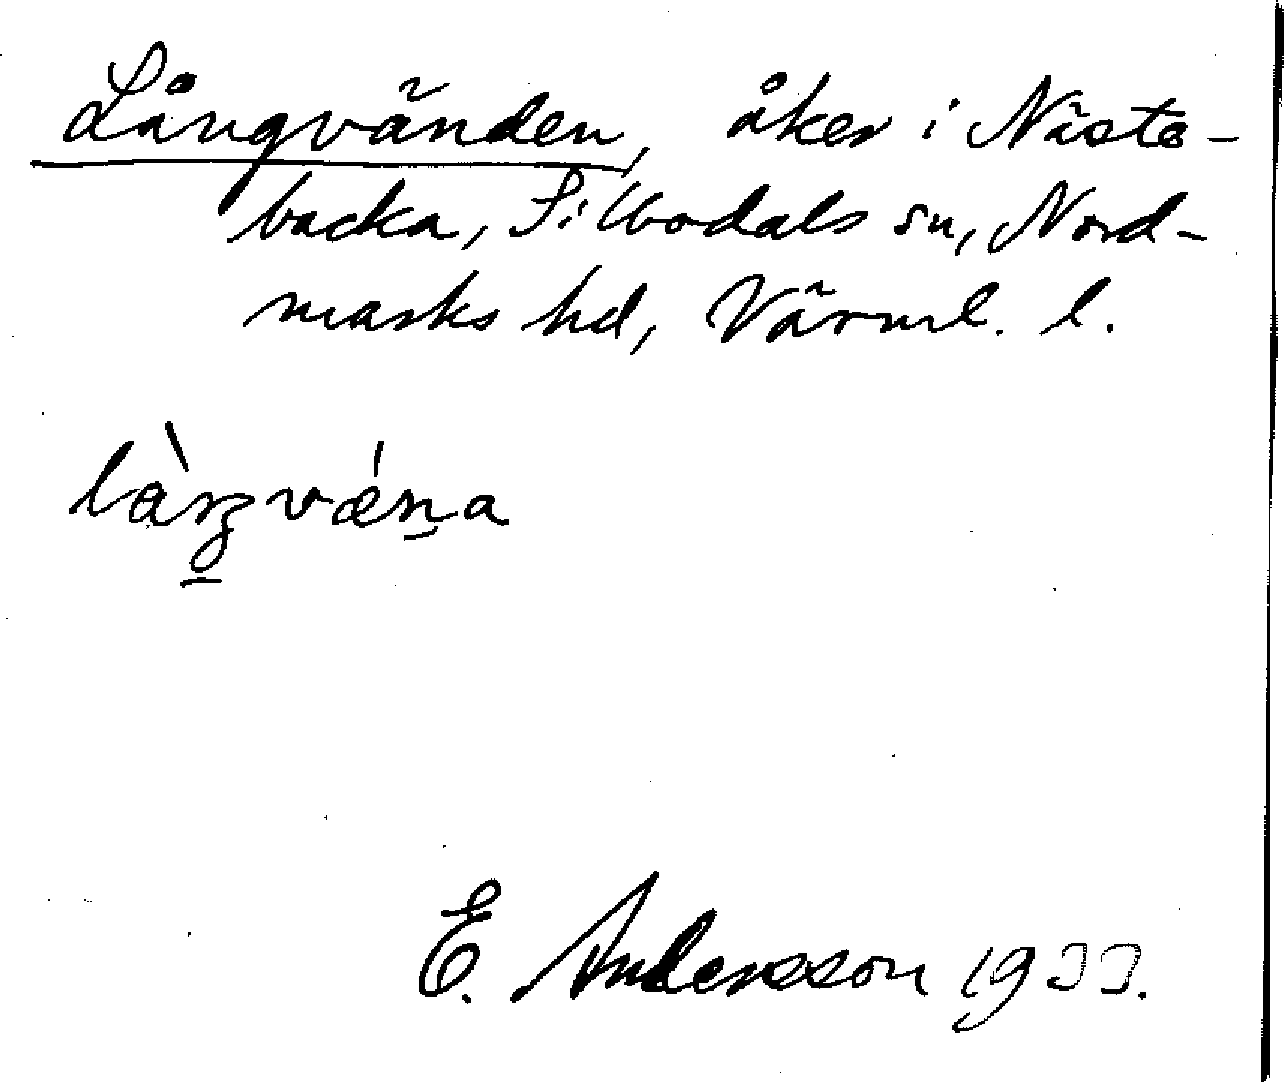 Långvänden, åker i Nästa-
backa, Silbodals sn, Nord-
marks hd, Värml. l.
E. Andersson 1933.